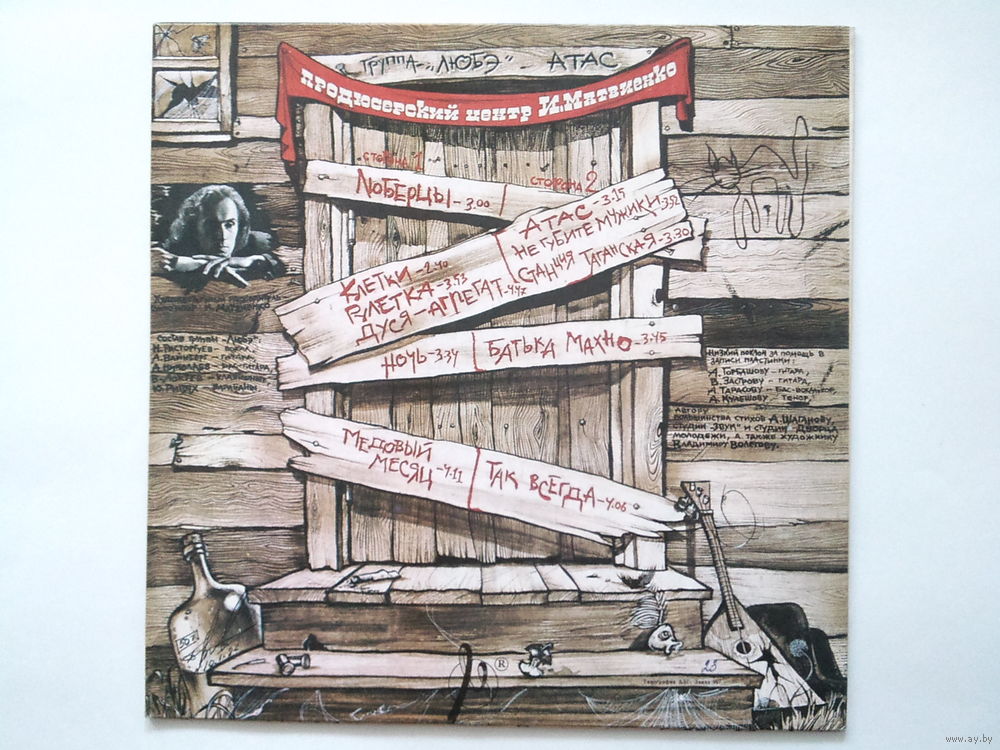 ГРУППА „ЛЮБЭ" - АТАС
ПРОДЮСЕРСКИЙ ЦЕНТР И.МАТВИЕНКО
СТОРОНА 1
ЛЮБЕРЦЫ - 3.00
КЛЕТКИ - 2.40
РУЛЕТКА - 3.53
ДУСЯ - АГРЕГАТ - 4.47
НОЧЬ - 3.34
МЕДОВЫЙ
МЕСЯЦ - 4.11
СТОРОНА 2
АТАС - 3.15
НЕ ГУБИТЕ МУЖИКИ - 3.52
СТАНЦИЯ ТАГАНСКАЯ - 3.30
БАТЬКА МАХНО - 3.45
ТАК ВСЕГДА - 4.06
СОСТАВ ГРУППЫ „ЛЮБЭ":
Н. РАСТОРГУЕВ - ВОКАЛ,
НИЗКИЙ ПОКЛОН ЗА ПОМОЩЬ В
ЗАПИСИ ПЛАСТИНКИ:
А. ГОРБАШОВУ - ГИТАРА,
В. ЗАСТРОВУ - ГИТАРА,
А. ТАРАСОВУ - БАС-ВОКАЛ,
А. КУЛЕШОВУ - ТЕНОР,
АВТОРУ
БОЛЬШИНСТВА СТИХОВ А. ШАГАНОВУ,
СТУДИИ „ЗВУК" И СТУДИИ ДВОРЦА
МОЛОДЕЖИ, А ТАКЖЕ ХУДОЖНИКУ
ВЛАДИМИРУ ВОЛЕГОВУ.
®
25
www.ay.by